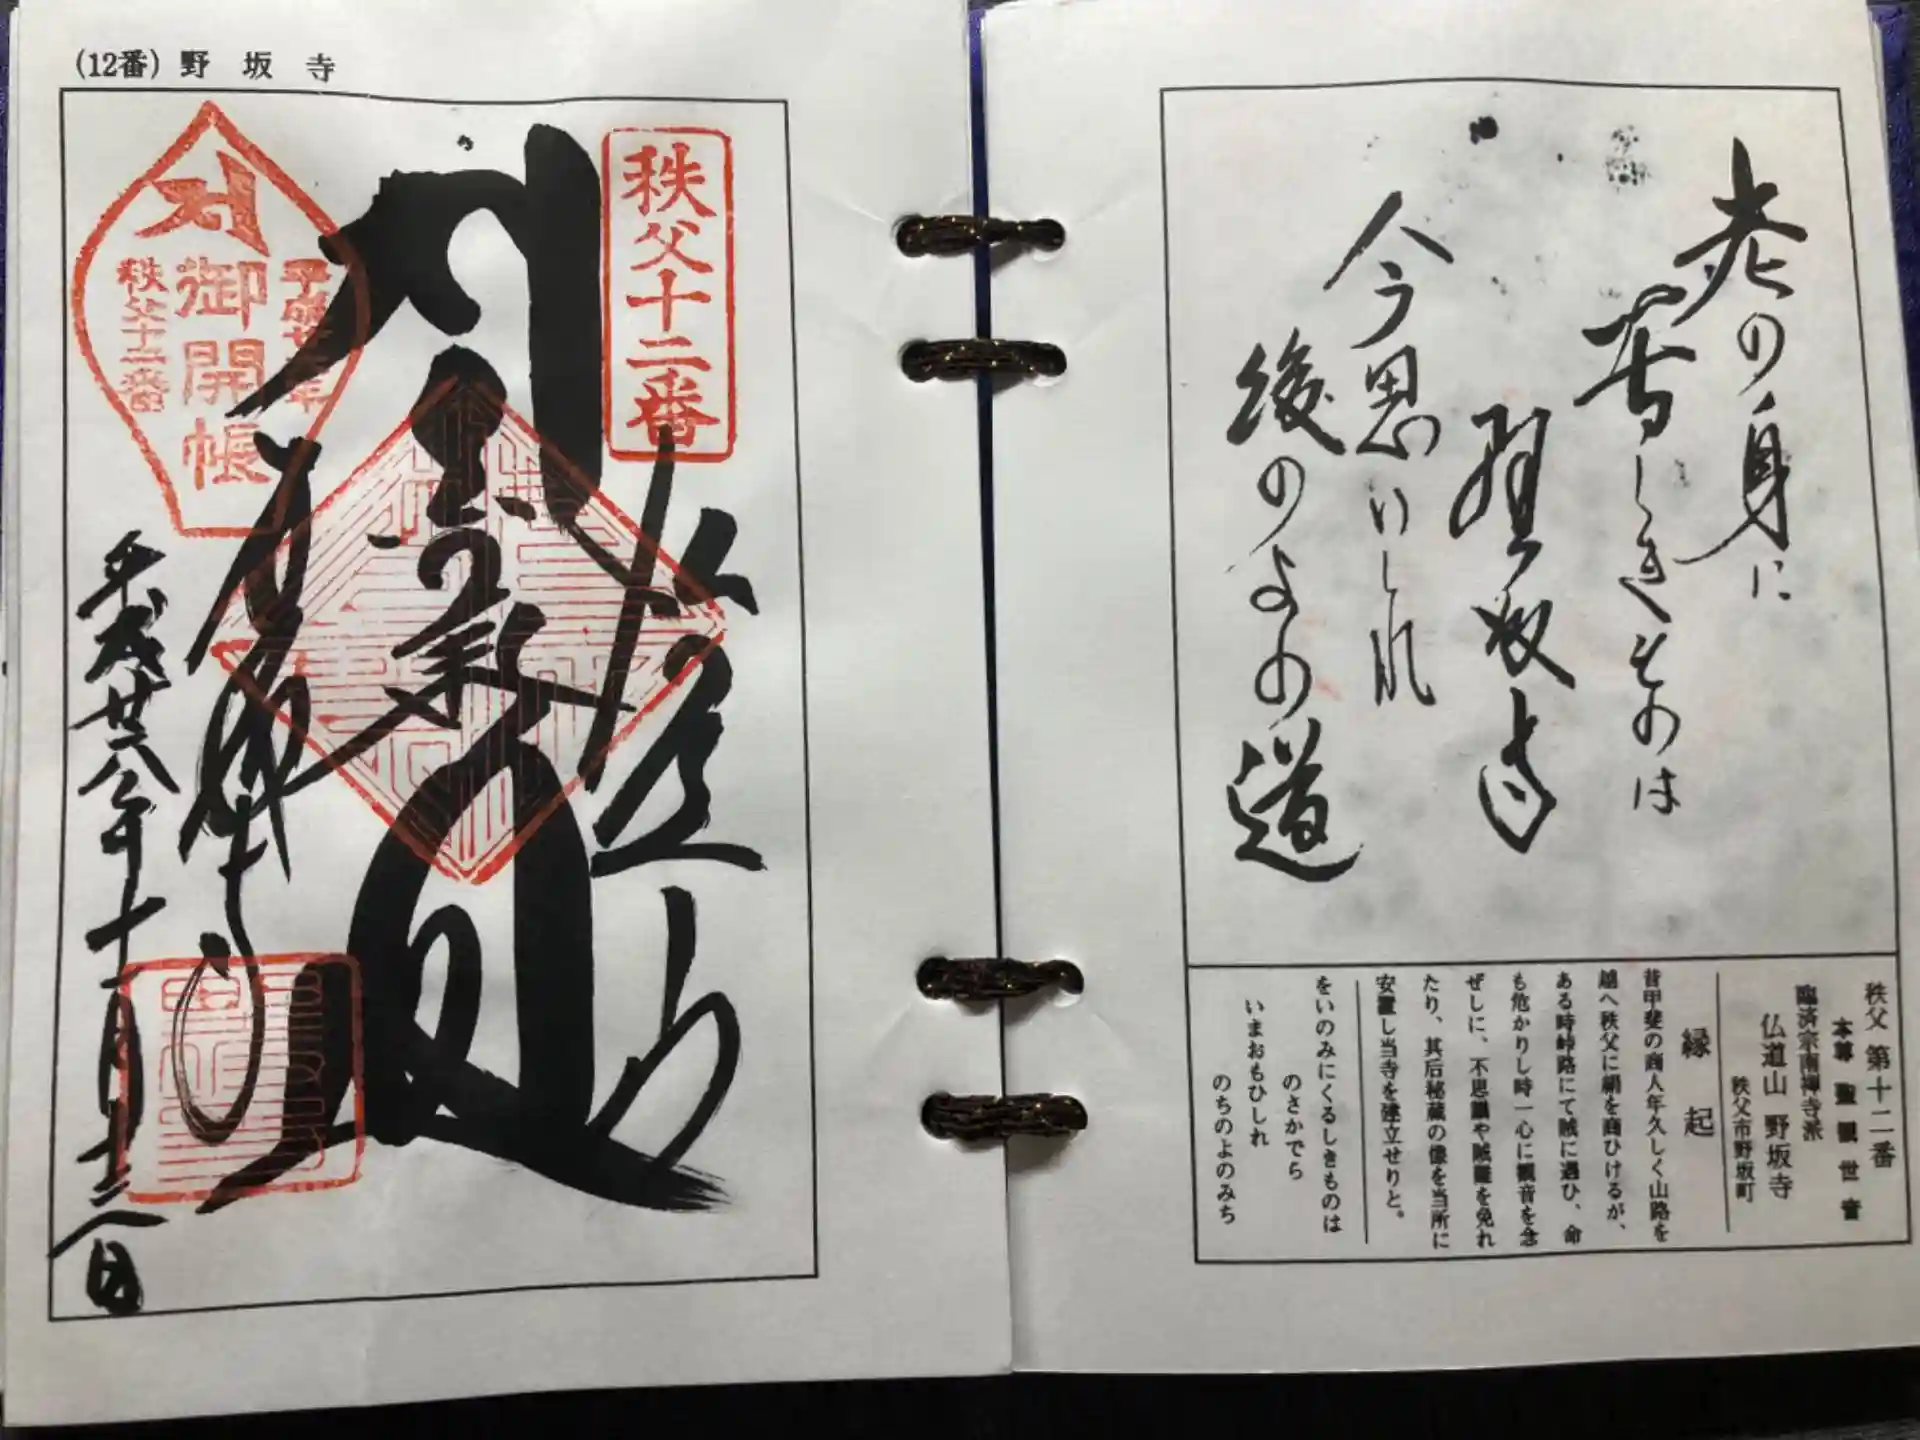 (12番) 野坂寺
秩父十二番
御開帳
秩父十二番
佛道山
平成廿八年十一月十二日
老の身に
苦しきものは
野坂寺
今思いしれ
後のよの道
秩父 第十二番
本尊 聖観世音
臨済宗南禅寺派
仏道山 野坂寺
秩父市野坂町
縁起
昔甲斐の商人年久しく山路を
越へ秩父に絹を商ひけるが、
ある時峠路にて賊に遇ひ、命
も危かりし時一心に観音を念
ぜしに、不思議や賊難を免れ
たり、其后秘蔵の像を当所に
安置し当寺を建立せりと。
をいのみにくるしきものは
のさかでら
いまおもひしれ
のちのよのみち